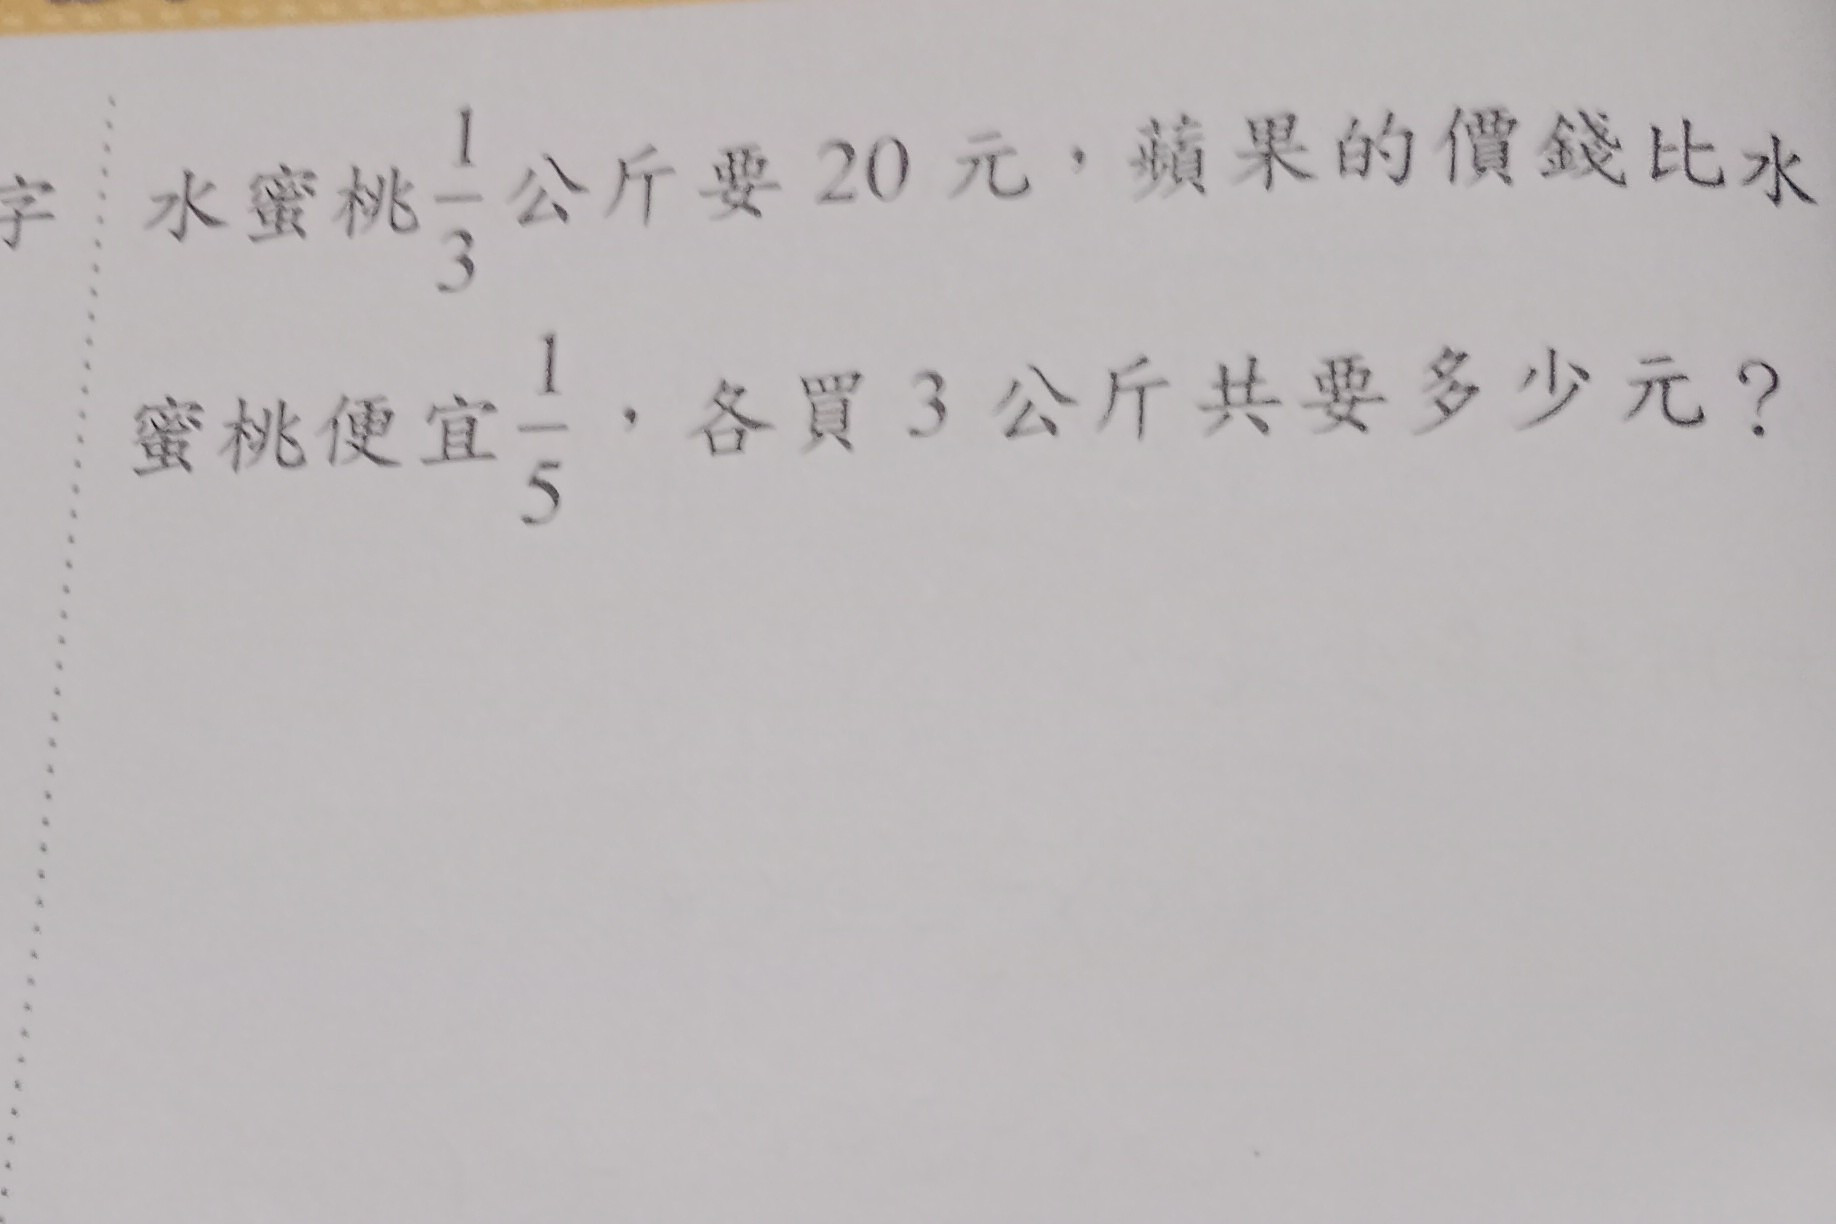 字
水蜜桃1/3公斤要20元，蘋果的價錢比水
蜜桃便宜1/5，各買3公斤共要多少元？